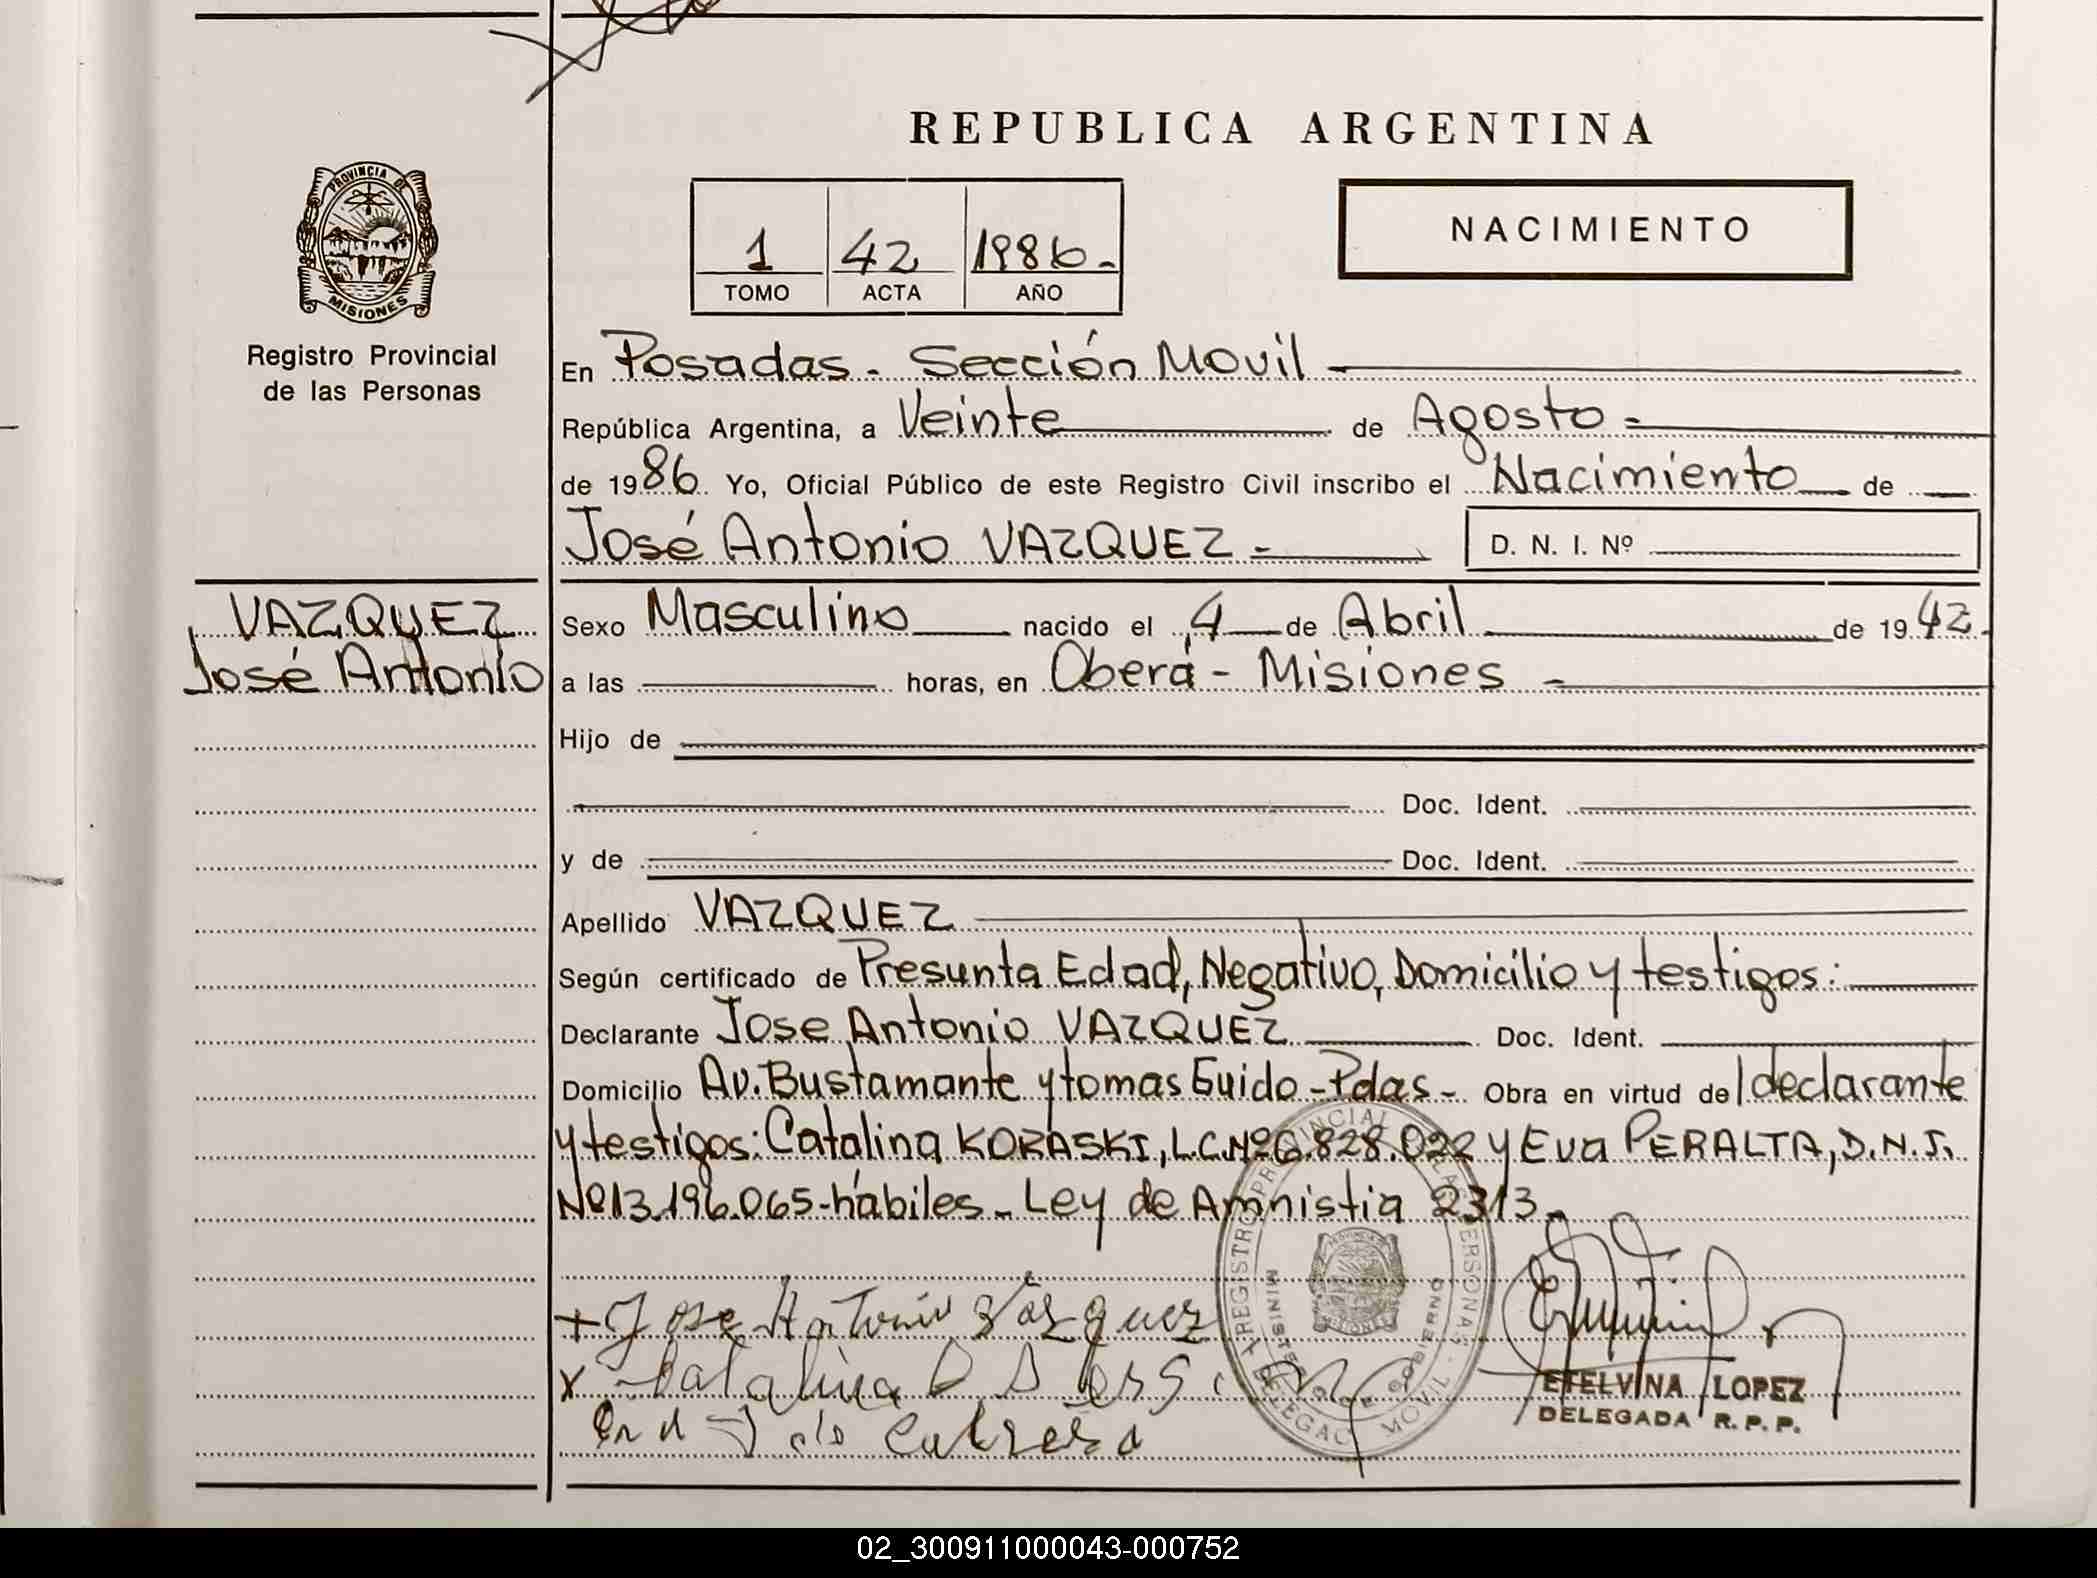 REPUBLICA ARGENTINA
PROVINCIA DE
MISIONES
Registro Provincial
de las Personas
1 42 1986.-
TOMO ACTA AÑO
NACIMIENTO
En Posadas.- Sección Movil
República Argentina, a Veinte de Agosto.-
de 1986. Yo, Oficial Público de este Registro Civil inscribo el Nacimiento de
José Antonio VAZQUEZ.- D. N. I. Nº
VAZQUEZ
José Antonio
Sexo Masculino nacido el 4 de Abril de 1942.
a las horas, en Oberá - Misiones -
Hijo de
Doc. Ident.
y de Doc. Ident.
Apellido VAZQUEZ
Según certificado de Presunta Edad, Negativo, Domicilio y testigos:
Declarante Jose Antonio VAZQUEZ Doc. Ident.
Domicilio Av. Bustamante y tomas Guido - Pdas - Obra en virtud del declarante
y testigos: Catalina KORASKI, L.C.Nº 6.828.022 y Eva PERALTA, D.N.I.
Nº 13.196.065- hábiles - Ley de Amnistia 2313.-
+ Jose Antonio Vasquez
x Catalina
REGISTRO PROVINCIAL DE LAS PERSONAS
MINISTERIO DE GOBIERNO
MOVIL
ETELVINA LOPEZ
DELEGADA R. P. P.
02_300911000043-000752